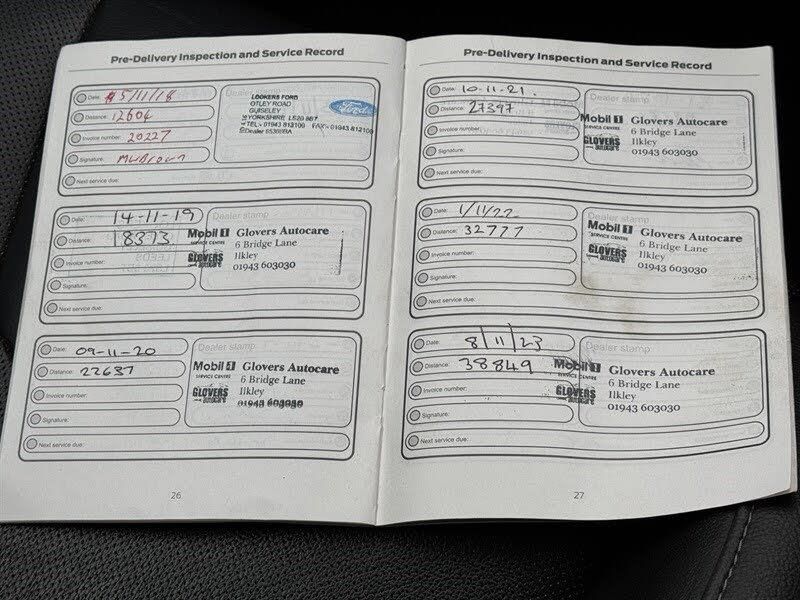 Pre-Delivery Inspection and Service Record
Date: 5/11/18
Distance: 12604
Invoice number: 20227
Signature:
Next service due:
Dealer stamp
LOOKERS FORD
OTLEY ROAD
GUISELEY
W YORKSHIRE LS20 8BT
TEL: 01943 812100 FAX: 01943 812100
Dealer 65300BA
Ford
Date: 14-11-19
Distance: 18373
Invoice number:
Signature:
Next service due:
Dealer stamp
Mobil 1
SERVICE CENTRE
GLOVERS
autocare
Glovers Autocare
6 Bridge Lane
Ilkley
01943 603030
Date: 09-11-20
Distance: 22637
Invoice number:
Signature:
Next service due:
Dealer stamp
Mobil 1
SERVICE CENTRE
GLOVERS
autocare
Glovers Autocare
6 Bridge Lane
Ilkley
01943 603030
26
Pre-Delivery Inspection and Service Record
Date: 10-11-21.
Distance: 27397
Invoice number:
Signature:
Next service due:
Dealer stamp
Mobil 1
SERVICE CENTRE
GLOVERS
autocare
Glovers Autocare
6 Bridge Lane
Ilkley
01943 603030
Date: 1/11/22
Distance: 32777
Invoice number:
Signature:
Next service due:
Dealer stamp
Mobil 1
SERVICE CENTRE
GLOVERS
autocare
Glovers Autocare
6 Bridge Lane
Ilkley
01943 603030
Date: 8/11/23
Distance: 38849
Invoice number:
Signature:
Next service due:
Dealer stamp
Mobil 1
SERVICE CENTRE
GLOVERS
autocare
Glovers Autocare
6 Bridge Lane
Ilkley
01943 603030
27